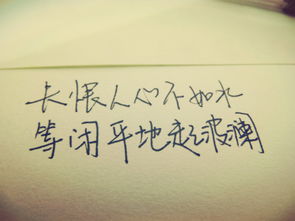 长恨人心不如水
等闲平地起波澜